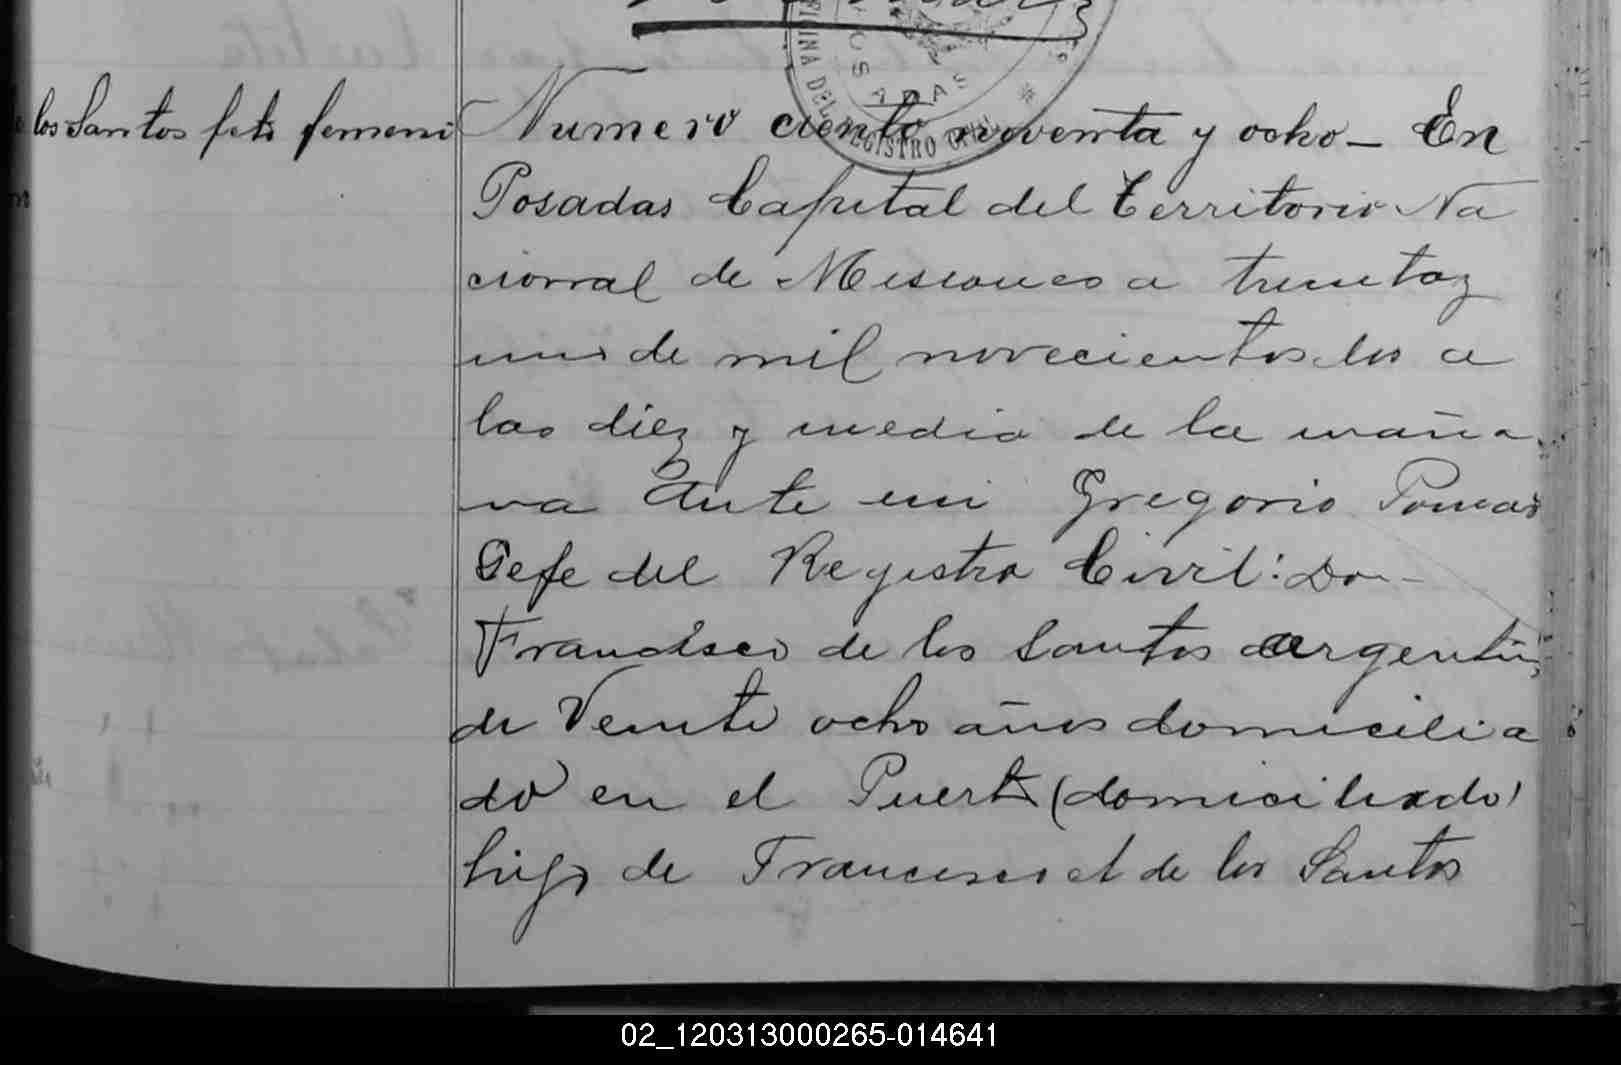 los Santos feto femeni
Numero ciento noventa y ocho - En
Posadas Capital del Territorio Na
cional de Misiones a treinta y
uno de mil novecientos dos a
las diez y media de la maña
na Ante mi Gregorio Pomar
Gefe del Registro Civil: Don
Francisco de los Santos argentino
de Veinte ocho años domicilia
do en el Puerto (domiciliado)
hijo de Francisco A de los Santos
OFICINA DEL REGISTRO CIVIL
POSADAS
02_120313000265-014641